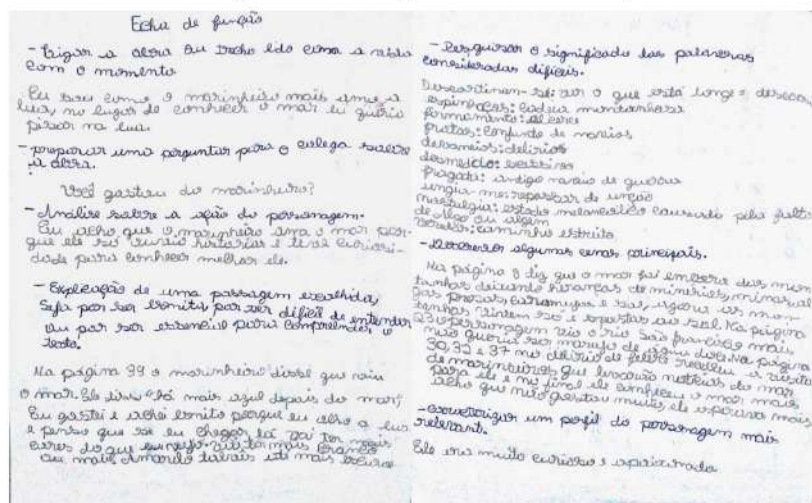 Ficha de função
- Ligar a obra ou trecho lido com a vida
com o momento
Eu sou como o marinheiro mais amo a
lua, no lugar de conhecer o mar eu queria
pisar na lua.
- preparar uma perguntar para o colega sobre
a obra.
Você gostou do marinheiro?
- Análise sobre a ação do personagem.
Eu acho que o marinheiro ama o mar por-
que ele so ouvia historias e teve curiosi-
dade para conhecer melhor ele.
- Explicação de uma passagem escolhida,
Seja por ser bonita, por ser difícil de entender
ou por ser essencial para compreender o
texto.
Na página 39 o marinheiro disse que viu
o mar. Ele disse "Há mais azul depois do mar",
Eu gostei e achei bonito porque eu olho a lua
e penso que se eu chegar lá vai ter mais
cores do que eu vejo. vai ter mais branco
ou mais Amarelo talvais até mais
- Pesquisar o significado das palavras
consideradas difíceis.
ver o que está longe =
espinhaços: Cadeia montanhosa
firmamento: alicerce
frotas: Conjunto de navios
devaneios: delirios
desmedido:
fragata: antigo navio de guerra
ungia-me: repassar de unção
nostalgia: estado melancólico causado pela falta
de algo ou alguem
caminho estreito
- Descrever algumas cenas principais.
Na página 8 diz que o mar foi embora das mon
tanhas deixando heranças de minerios, minas
pozas, caramujos e sal, agora as mon-
tanhas vivem so e expostas ao sol. Na página
23 o personagem viu o rio São francisco mais
não queria ser marujo de água doce. Na página
30, 32 e 37 no delirio de febre recebeu a visita
de marinheiros que levarão noticias do mar
para ele e no final ele conheceu o mar mais
acho que não gostou muito, ele esperava mais
- Caracterizar um perfil do personagem mais
relevant.
Ele era muito curioso e apaixonado